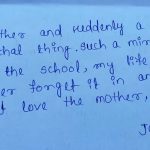 ther and suddenly a
that thing. such a mir
the school, my life
er forget it in an
t love the mother,
J